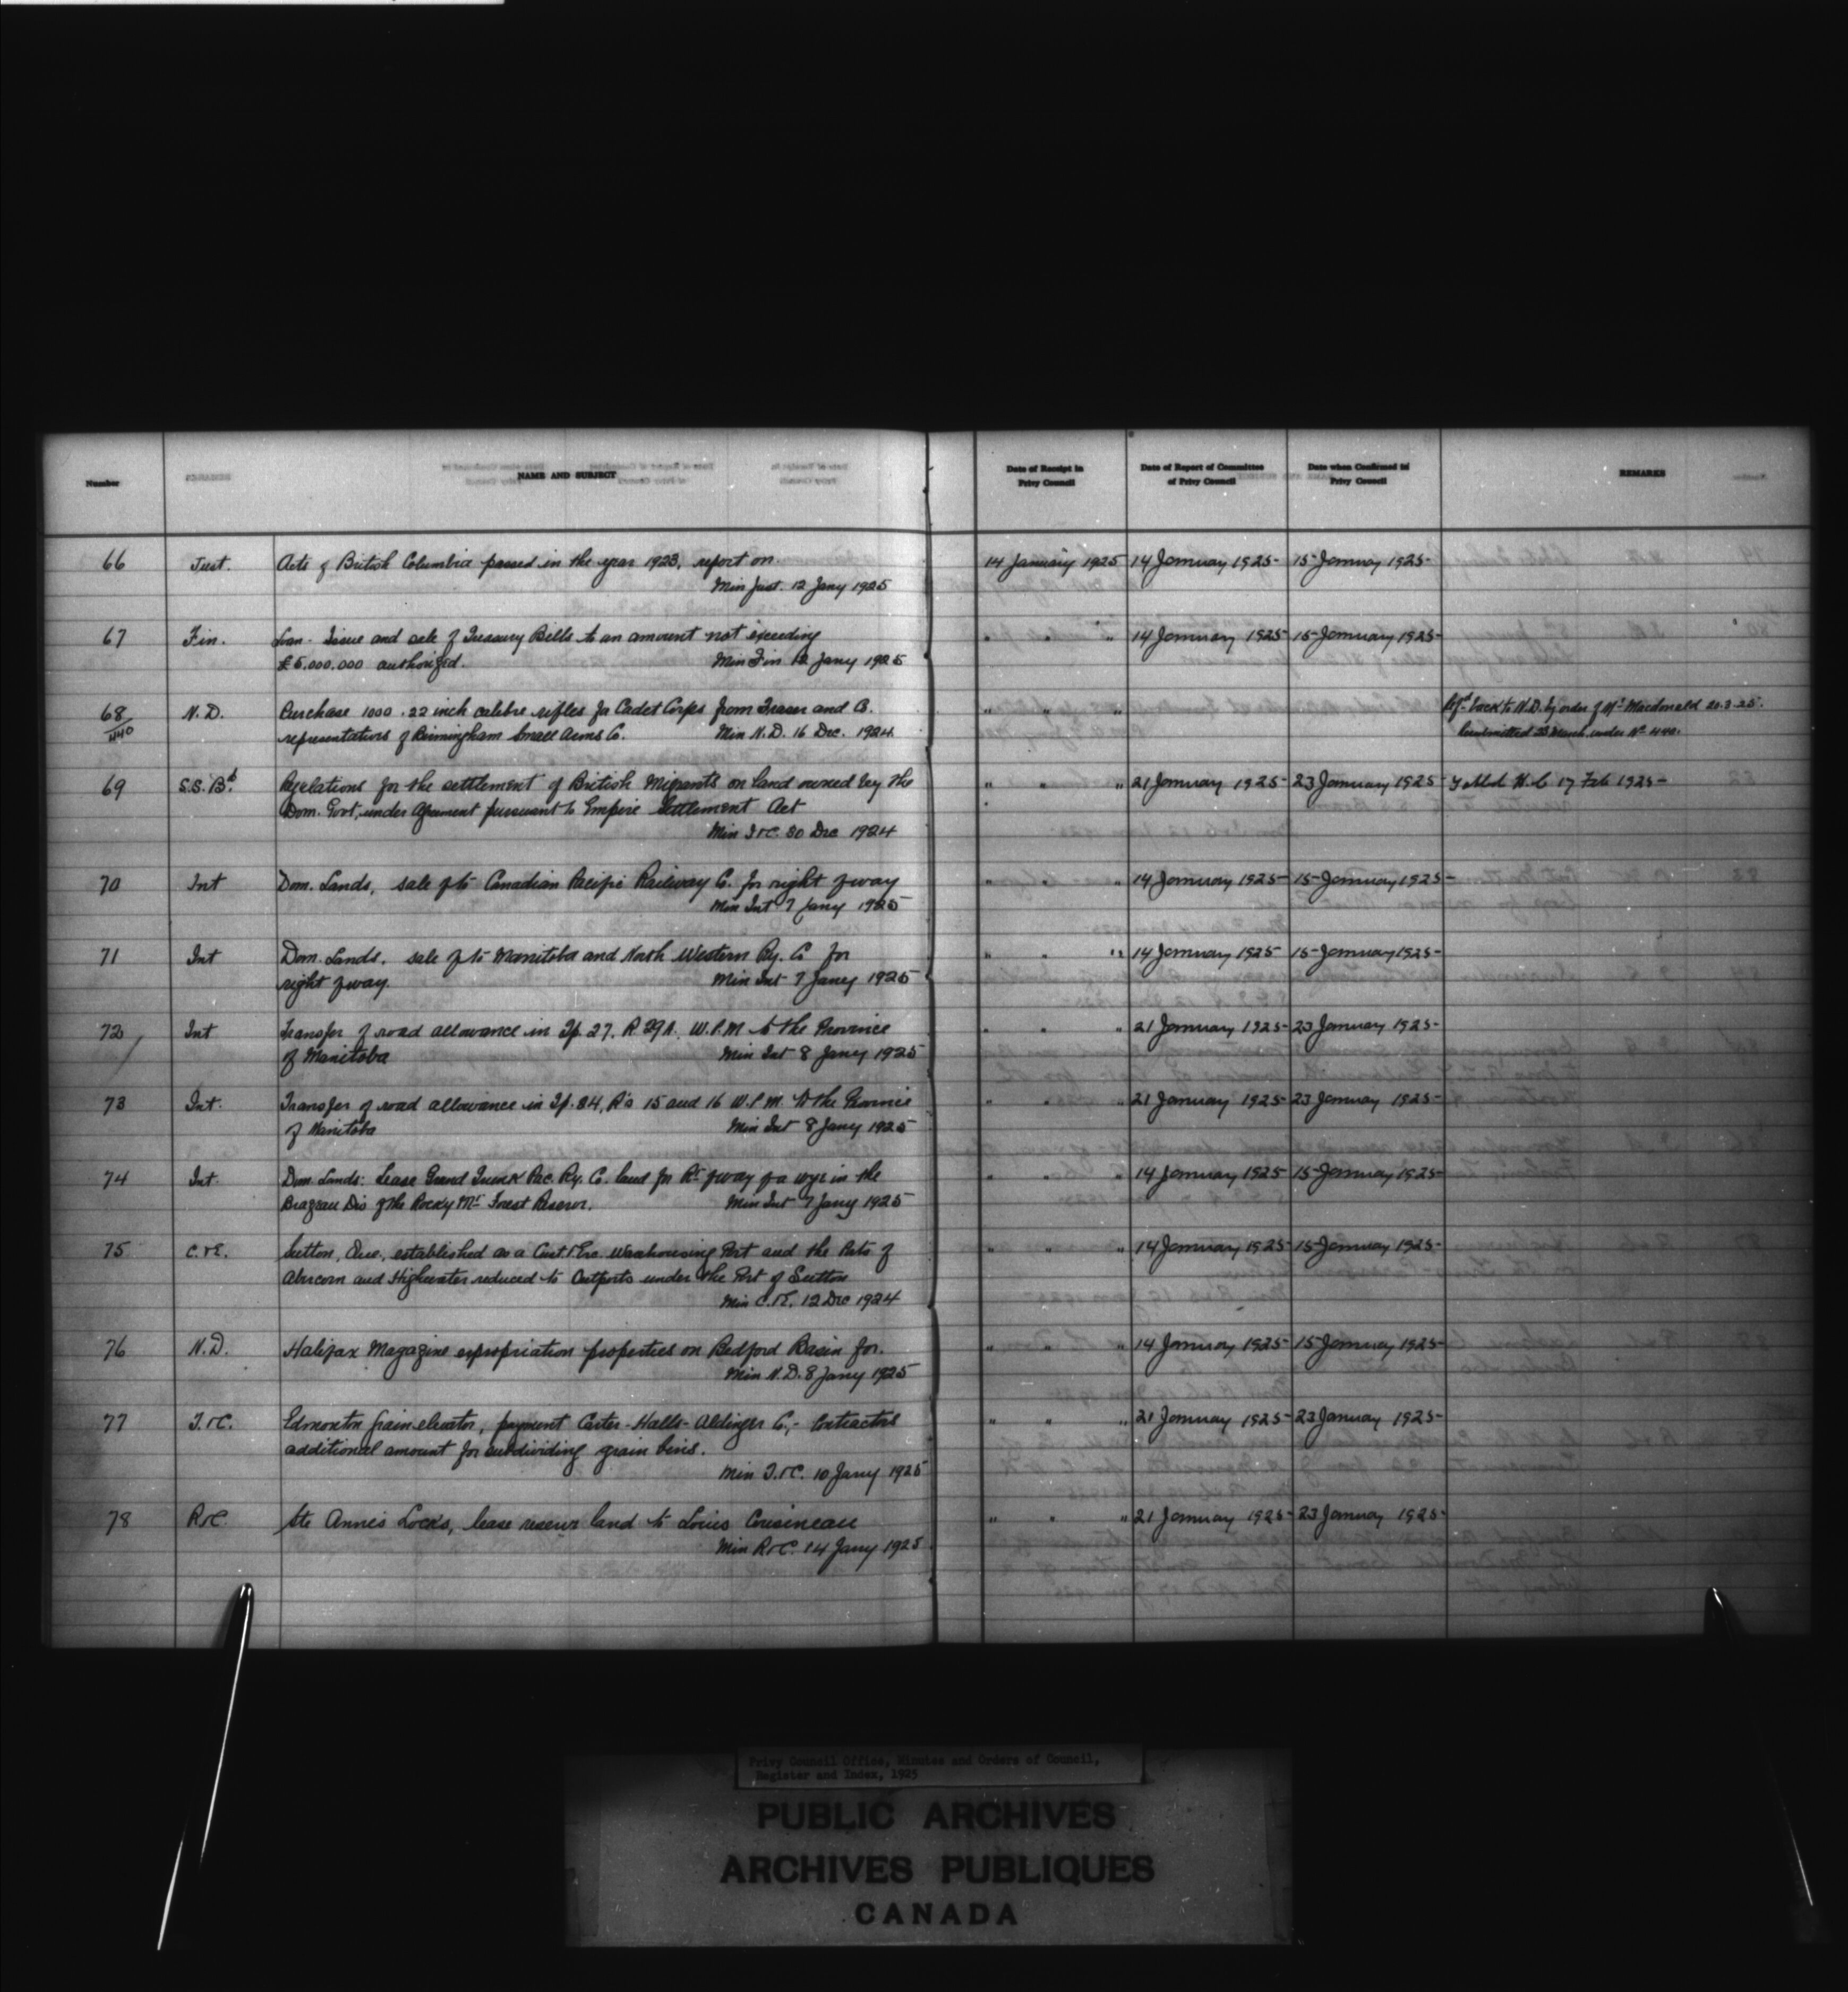 Number
NAME AND SUBJECT
Date of Receipt in Privy Council
Date of Report of Committee of Privy Council
Date when Confirmed in Privy Council
REMARKS
66 Just. Acts of British Columbia passed in the year 1923, report on 14 January 1925 14 January 1925 15 January 1925
Min Just. 12 Jany 1925
67 Fin. Loan - Issue and sale of Treasury Bills to an amount not exceeding " " " 14 January 1925 15 January 1925
£5.000.000 authorized. Min Fin 12 Jany 1925
68/440 N.D. Purchase 1000 .22 inch calibre rifles for Cadet Corps from Fraser and Co. " " " Ref'd back to N.D. by order of Mr Macdonald 20.3.25.
representatives of Birmingham Small Arms Co. Min N.D. 16 Dec. 1924 Resubmitted 23 March under No 440.
69 S.S.Bd. Regulations for the settlement of British Migrants on land owned by the " " " 21 January 1925 23 January 1925 Tabled H.C 17 Feb 1925
Dom. Govt, under Agreement pursuant to Empire Settlement Act
Min I&C. 30 Dec 1924
70 Int Dom. Lands, sale of to Canadian Pacific Railway Co. for right of way " " " 14 January 1925 15 January 1925
Min Int 7 Jany 1925
71 Int Dom. Lands, sale of to Manitoba and North Western Ry. Co for " " " 14 January 1925 15 January 1925
right of way. Min Int 7 Jany 1925
72 Int Transfer of road allowance in Tp. 27, R 29A. W.P.M to the Province " " " 21 January 1925 23 January 1925
of Manitoba Min Int 8 Jany 1925
73 Int. Transfer of road allowance in Tp. 34, R's 15 and 16 W.P.M. to the Province " " " 21 January 1925 23 January 1925
of Manitoba Min Int 8 Jany 1925
74 Int Dom Lands: Lease Grand Trunk Pac. Ry. Co. land for Rt of way of a wye in the " " " 14 January 1925 15 January 1925
Brazeau Div of the Rocky Mt Forest Reserve. Min Int 7 Jany 1925
75 C.&E. Sutton, Que, established as a Cust & Exc. Warehousing Port and the Ports of " " " 14 January 1925 15 January 1925
Abercorn and Highwater reduced to Outports under the Port of Sutton
Min C.&E. 12 Dec 1924
76 N.D. Halifax Magazine expropriation properties on Bedford Basin for. " " " 14 January 1925 15 January 1925
Min N.D. 8 Jany 1925
77 T.&C. Edmonton Grain elevator, payment Carter-Halls-Aldinger Co,- Contractors " " " 21 January 1925 23 January 1925
additional amount for subdividing grain bins.
Min T.&C. 10 Jany 1925
78 R&C. Ste Anne's Locks, lease reserve land to Louis Cousineau " " " 21 January 1925 23 January 1925
Min R&C. 14 Jany 1925
Privy Council Office, Minutes and Orders of Council,
Register and Index, 1925
PUBLIC ARCHIVES
ARCHIVES PUBLIQUES
CANADA